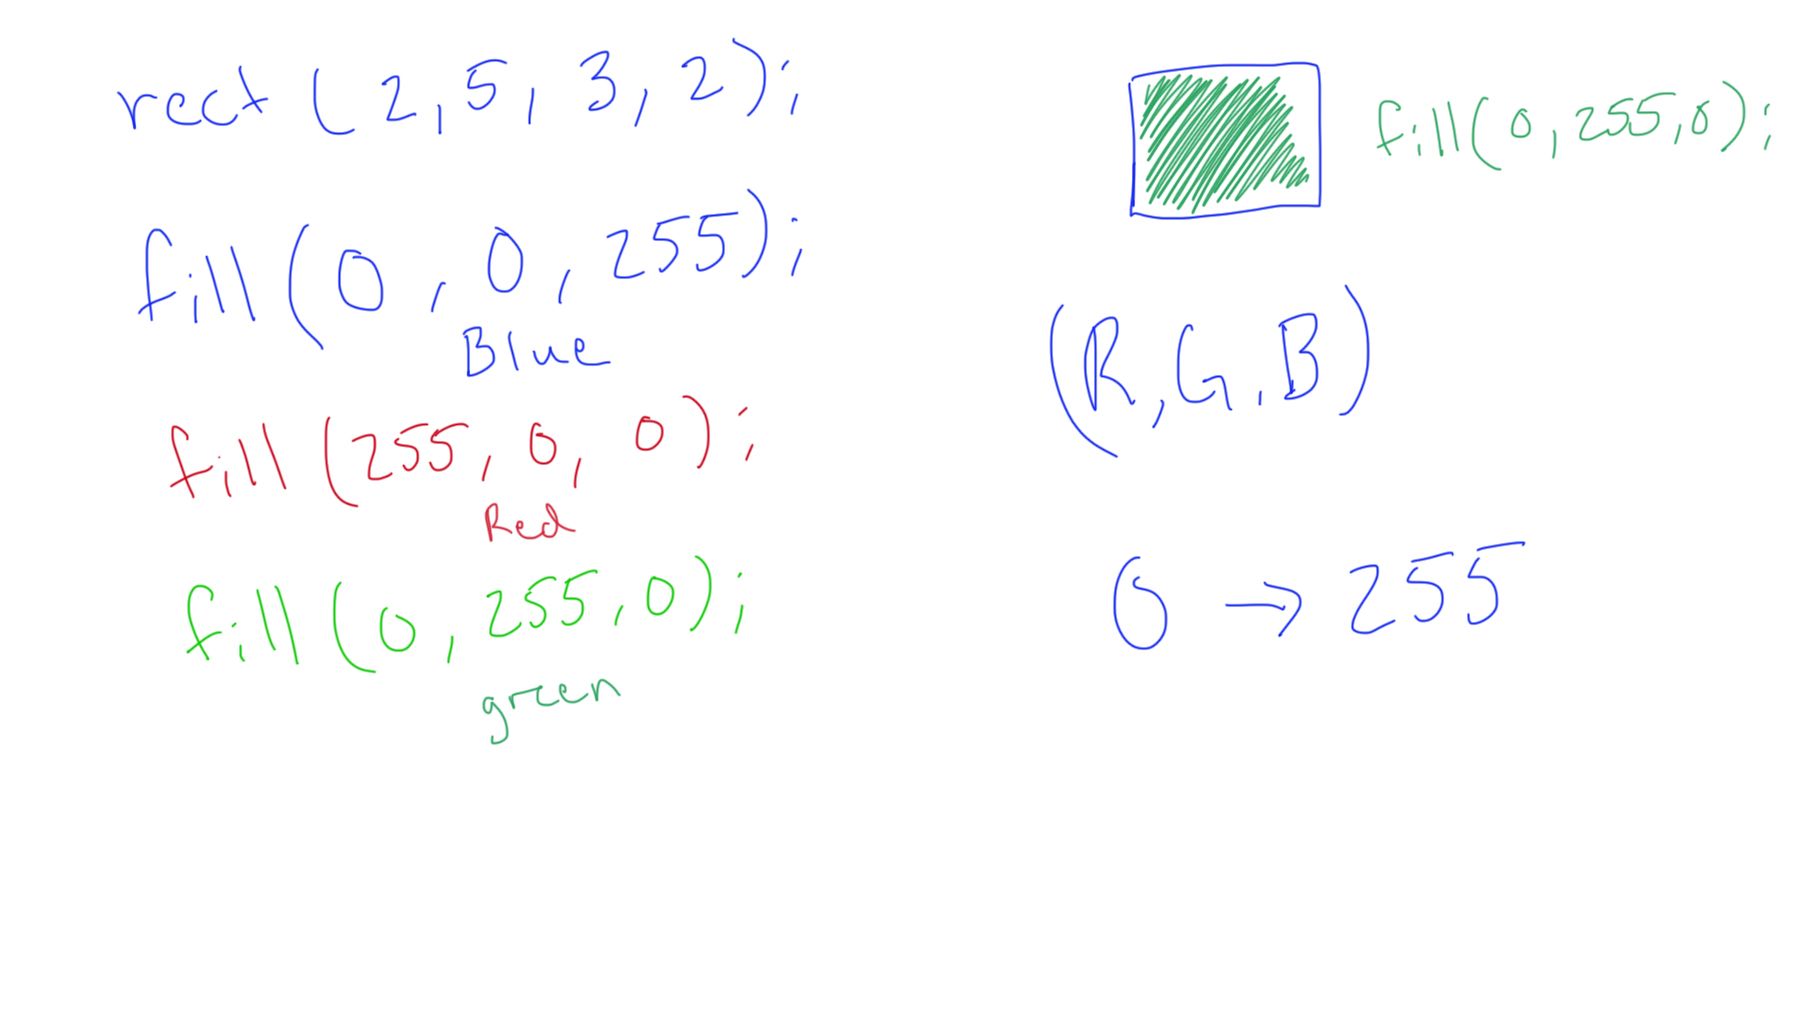 rect (2,5,3,2);
fill(0,0,255);
Blue
fill(255,0,0);
Red
fill(0,255,0);
green
fill(0,255,0);
(R,G,B)
0 → 255